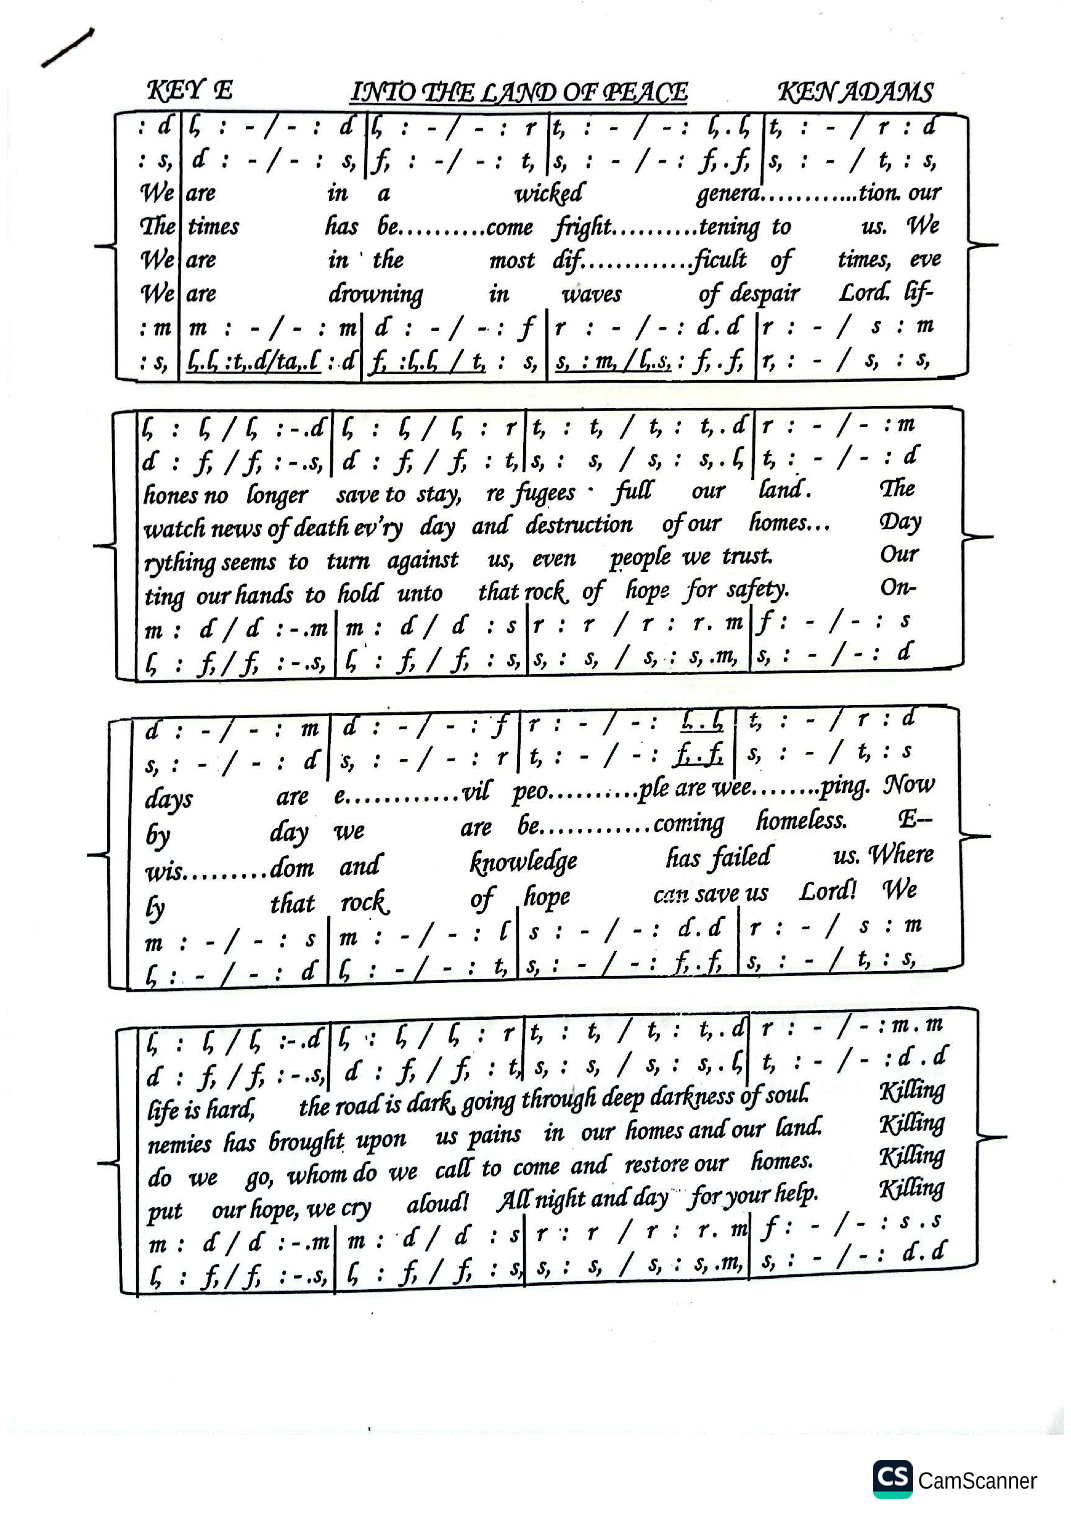 KEY E INTO THE LAND OF PEACE KEN ADAMS
: d | l, : - / - : d | l, : - / - : r | t, : - / - : l, . l, | t, : - / r : d
: s, | d : - / - : s, | f, : - / - : t, | s, : - / - : f, . f, | s, : - / t, : s,
We are in a wicked genera............tion. our
The times has be..........come fright..........tening to us. We
We are in the most dif.............ficult of times, eve
We are drowning in waves of despair Lord. lif-
: m | m : - / - : m | d : - / - : f | r : - / - : d . d | r : - / s : m
: s, | l,.l, : t,.d / ta,.l : d | f, : l,.l, / t, : s, | s, : m, / l,.s, : f, . f, | r, : - / s, : s,
l, : l, / l, : - .d | l, : l, / l, : r | t, : t, / t, : t, . d | r : - / - : m
d : f, / f, : - .s, | d : f, / f, : t, | s, : s, / s, : s, . l, | t, : - / - : d
hones no longer save to stay, re fugees full our land. The
watch news of death ev'ry day and destruction of our homes... Day
rything seems to turn against us, even people we trust. Our
ting our hands to hold unto that rock of hope for safety. On-
m : d / d : - .m | m : d / d : s | r : r / r : r. m | f : - / - : s
l, : f, / f, : - .s, | l, : f, / f, : s, | s, : s, / s, : s, .m, | s, : - / - : d
d : - / - : m | d : - / - : f | r : - / - : l, . l, | t, : - / r : d
s, : - / - : d | s, : - / - : r | t, : - / - : f, . f, | s, : - / t, : s
days are e............vil peo..........ple are wee........ping. Now
by day we are be............coming homeless. E--
wis.........dom and knowledge has failed us. Where
ly that rock of hope can save us Lord! We
m : - / - : s | m : - / - : l | s : - / - : d . d | r : - / s : m
l, : - / - : d | l, : - / - : t, | s, : - / - : f, . f, | s, : - / t, : s,
l, : l, / l, : - .d | l, : l, / l, : r | t, : t, / t, : t, . d | r : - / - : m . m
d : f, / f, : - .s, | d : f, / f, : t, | s, : s, / s, : s, . l, | t, : - / - : d . d
life is hard, the road is dark, going through deep darkness of soul. Killing
nemies has brought upon us pains in our homes and our land. Killing
do we go, whom do we call to come and restore our homes. Killing
put our hope, we cry aloud! All night and day for your help. Killing
m : d / d : - .m | m : d / d : s | r : r / r : r. m | f : - / - : s . s
l, : f, / f, : - .s, | l, : f, / f, : s, | s, : s, / s, : s, .m, | s, : - / - : d . d
CS CamScanner